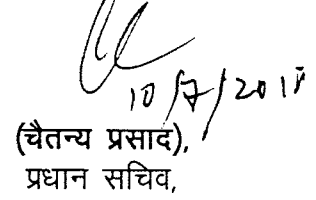 10/7/2018
(चैतन्य प्रसाद),
प्रधान सचिव,